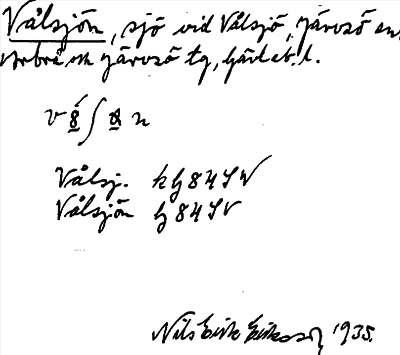 Vålsjön, sjö vid Vålsjö, Järvsö sn,
Arbrå m Järvsö tg, Gävleb. l.
Vålsj. kg 84 SV
Vålsjön g 84 SV
Nils Erik Eriksson 1935.